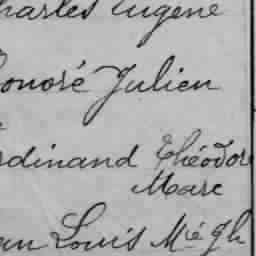 harles Eugène
onoré Julien
rdinand Théodor
Marc
an Louis Mie Gh